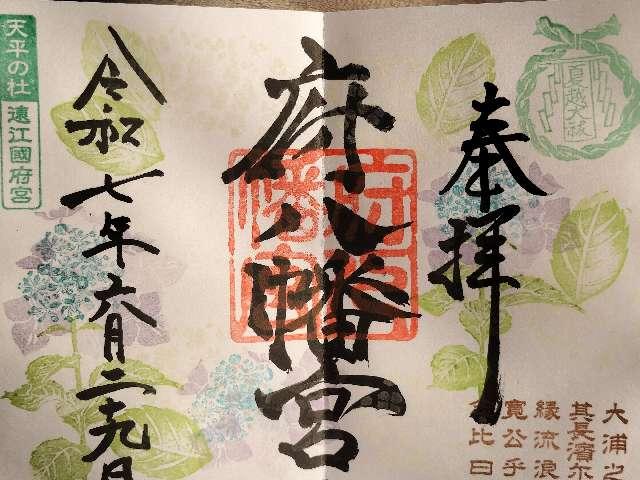 夏越大祓
奉拝
府八幡宮
令和七年六月二十九日
天平の杜
遠江國府宮
大浦之
其長濱尓
縁流浪
寛公乎
念比日